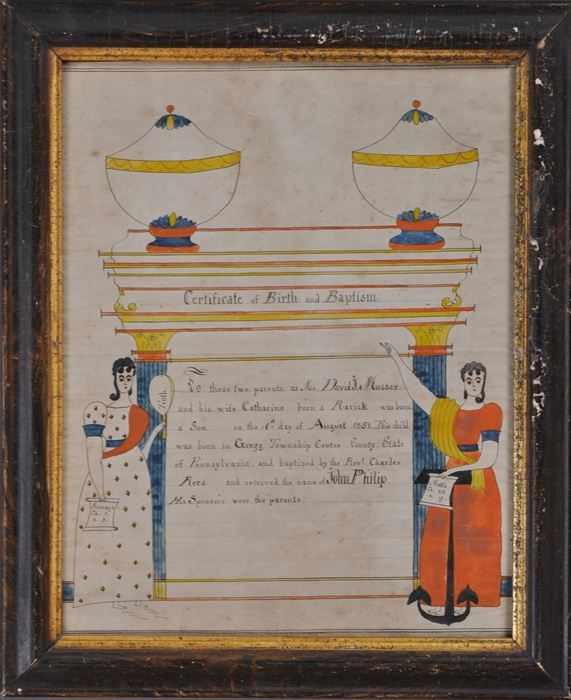 Certificate of Birth and Baptism
To these two parents as Mr. David Musser
and his wife Catharine born a Rarick was born
a Son on the 6th day of August 1851 This child
was born in Gregg Township Centre County State
of Pennsylvania and baptized by the Revd. Charles
Rees and received the name of John Philip
His Sponsors were the parents
Faith